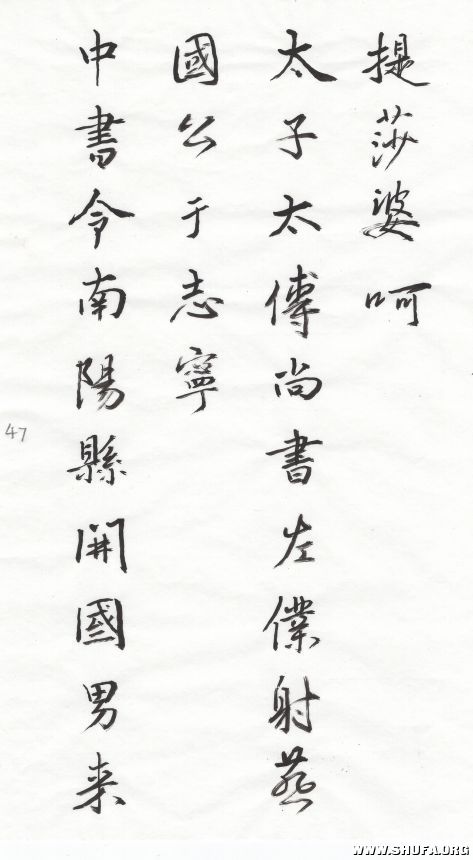 提莎婆呵
太子太傅尚書左僕射燕
國公于志寧
中書令南陽縣開國男来
47
WWW.SHUFA.ORG